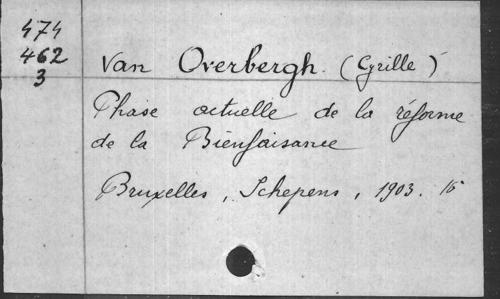 474
462
3
Van Overbergh. (Cyrille)
Phase actuelle de la réforme
de la Bienfaisance
Bruxelles, Schepens, 1903.